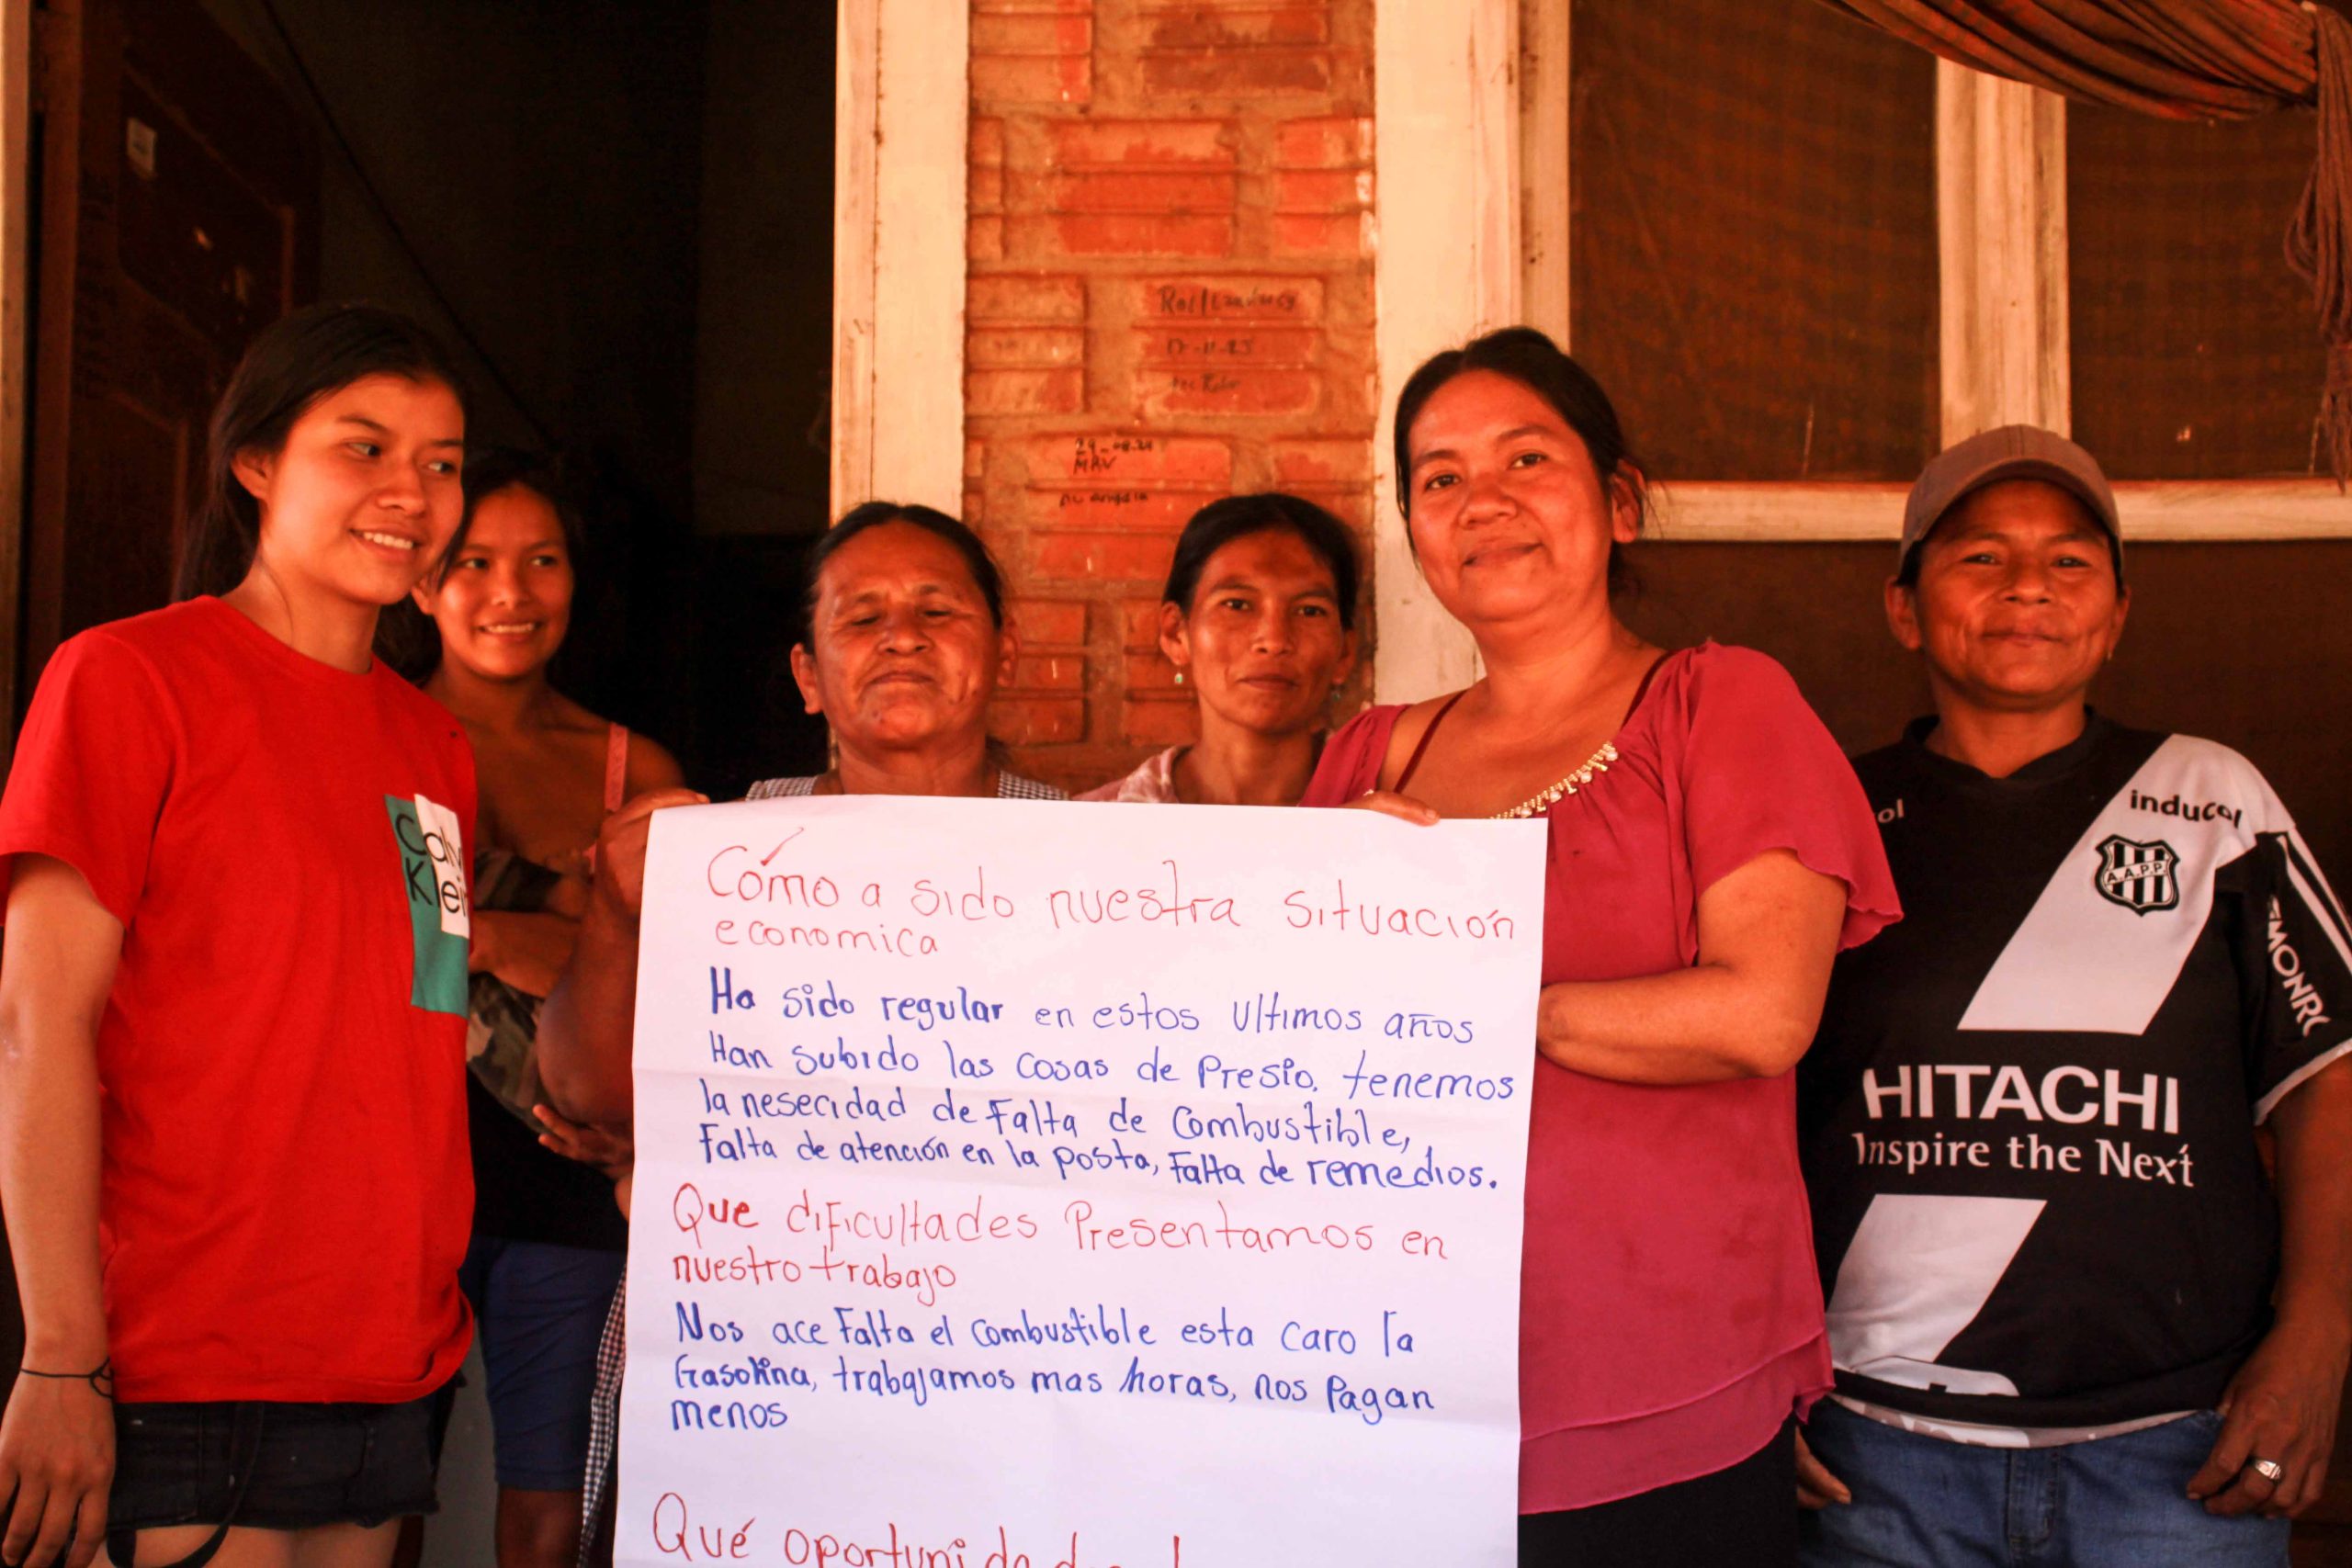 MAV
Calv
Klei
ol
inducol
A.A.P.P
HITACHI
Inspire the Next
Cómo a sido nuestra situación
economica
Ha sido regular en estos ultimos años
Han subido las cosas de Presio, tenemos
la nesecidad de falta de Combustible,
falta de atención en la posta, falta de remedios.
Que dificultades Presentamos en
nuestro trabajo
Nos ace falta el combustible esta caro la
Gasolina, trabajamos mas horas, nos Pagan
menos
Qué